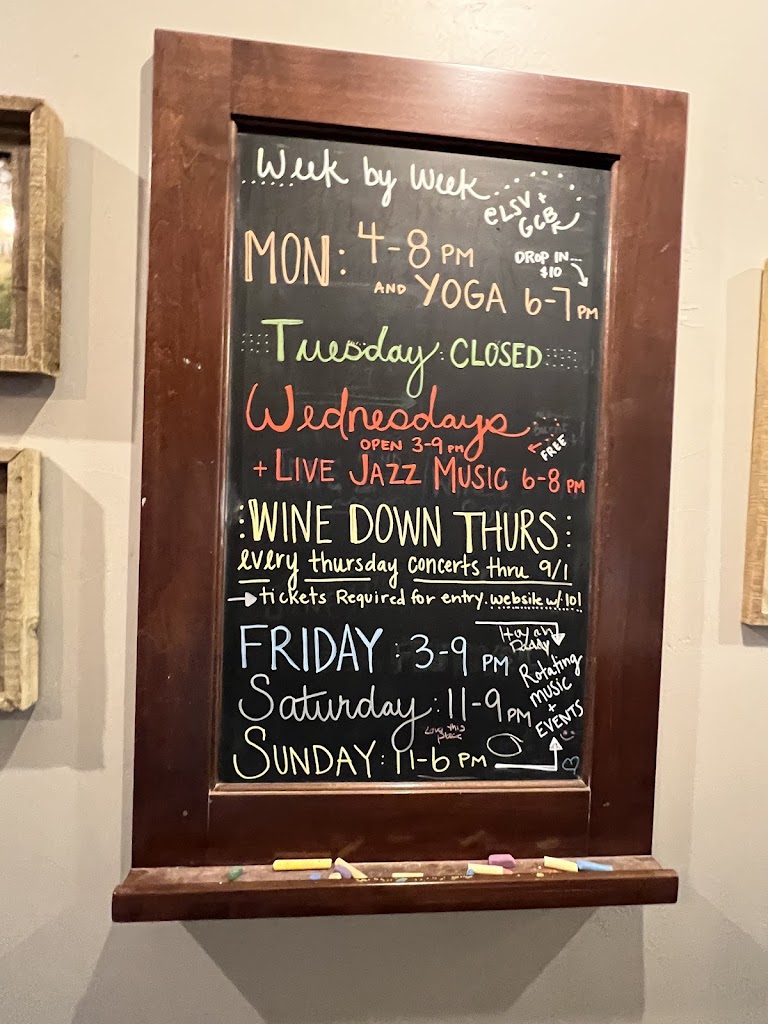 Week by Week
eLSV +
GCB
MON: 4-8 PM
DROP IN...
$10
AND YOGA 6-7 PM
Tuesday: CLOSED
Wednesdays
OPEN 3-9 PM
FREE
+ LIVE JAZZ MUSIC 6-8 PM
:WINE DOWN THURS:
every thursday concerts thru 9/1
→ tickets Required for entry. website w/ 10!
FRIDAY: 3-9 PM
Daddy
Rotating
MUSIC
+
EVENTS
Saturday: 11-9 PM
Love this
place
SUNDAY: 11-6 PM